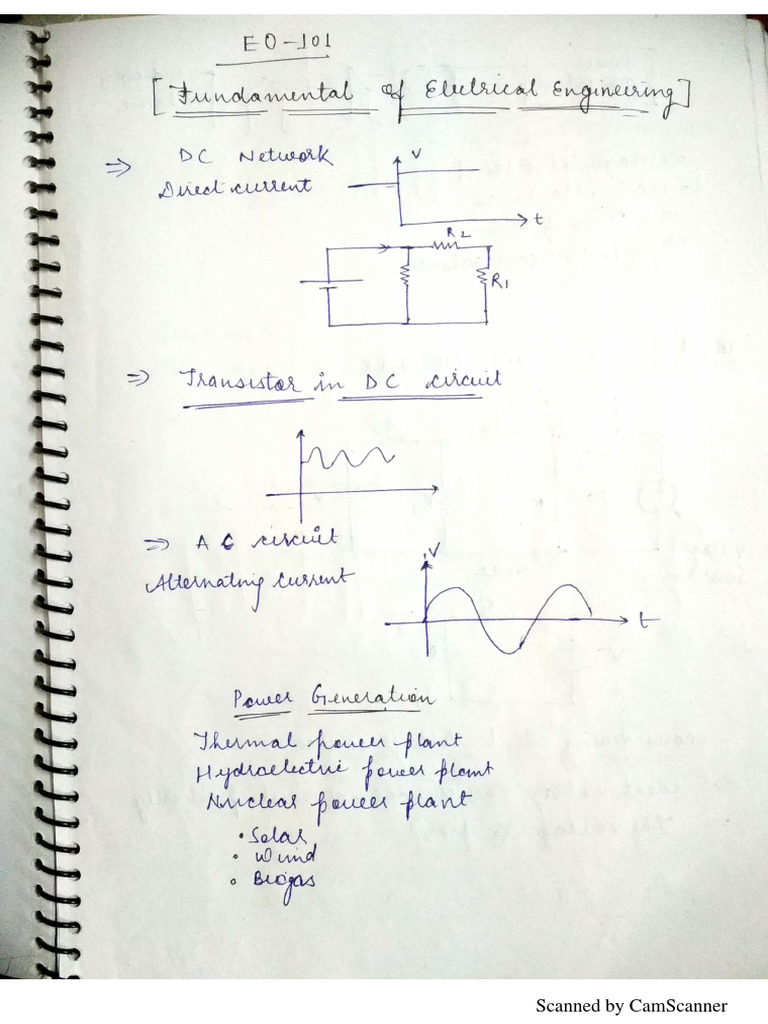 EO-101
[Fundamental of Electrical Engineering]
⇒ DC Network
Direct current
V
t
R2
R1
⇒ Transistor in DC circuit
⇒ AC circuit
Alternatnig current
V
t
Power Generation
Thermal power plant
Hydroelectric power plant
Nuclear power plant
• Solar
• Wind
• Biogas
Scanned by CamScanner